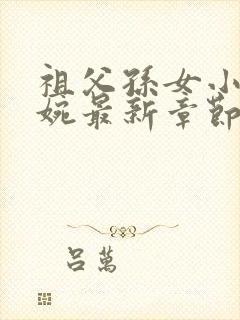 祖父孫女小
婉最新章節
吕萬